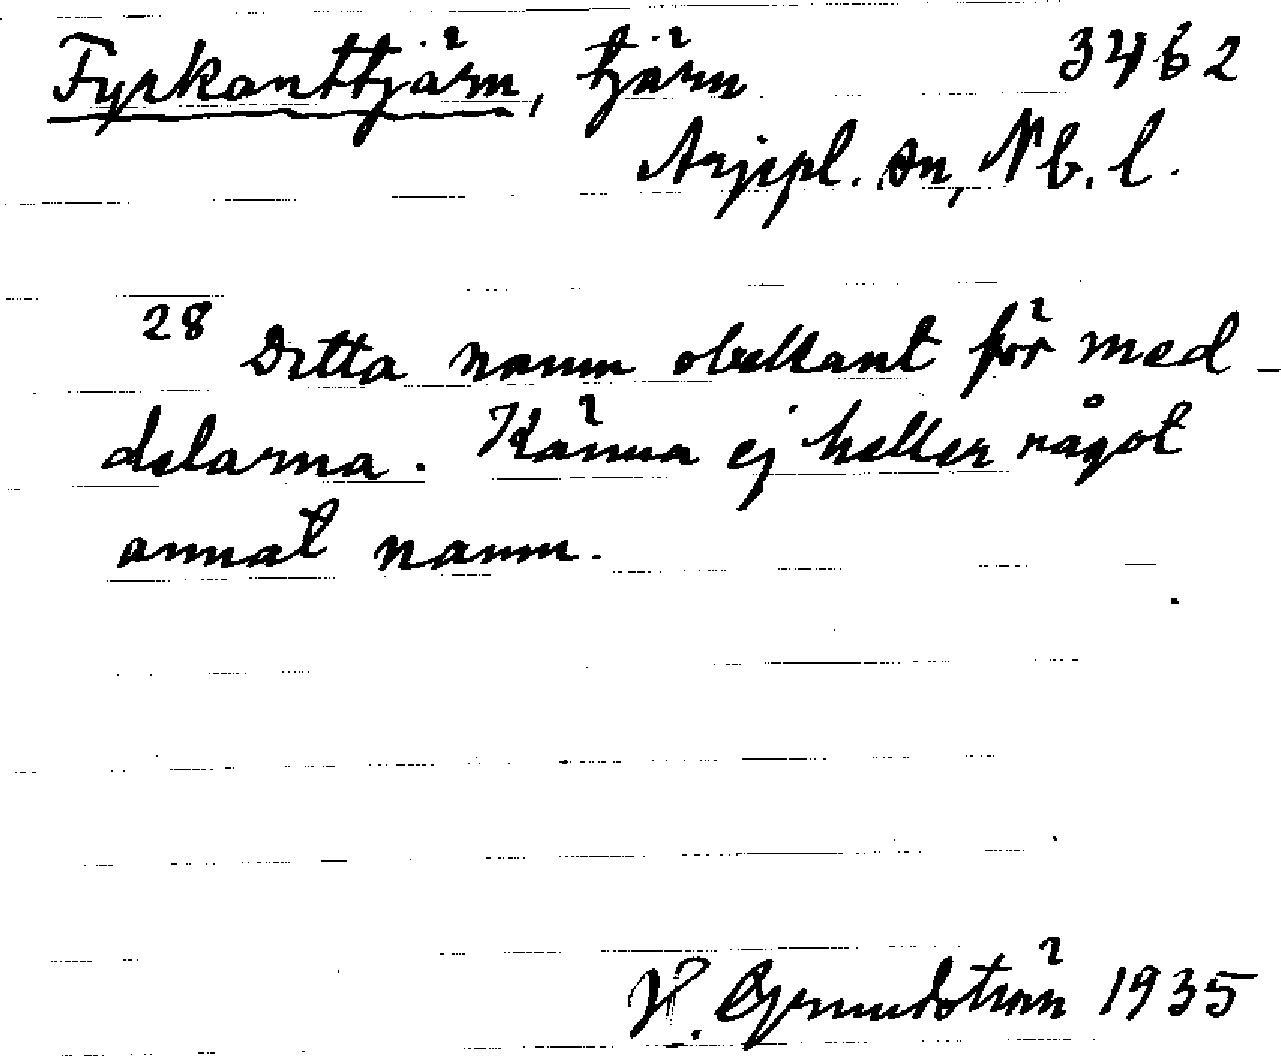 Fyrkanttjärn, tjärn 3462
Arjepl. sn, Nb. l.
28 Detta namn obekant för med-
delarna. Känna ej heller något
annat namn.
H. Grundström 1935